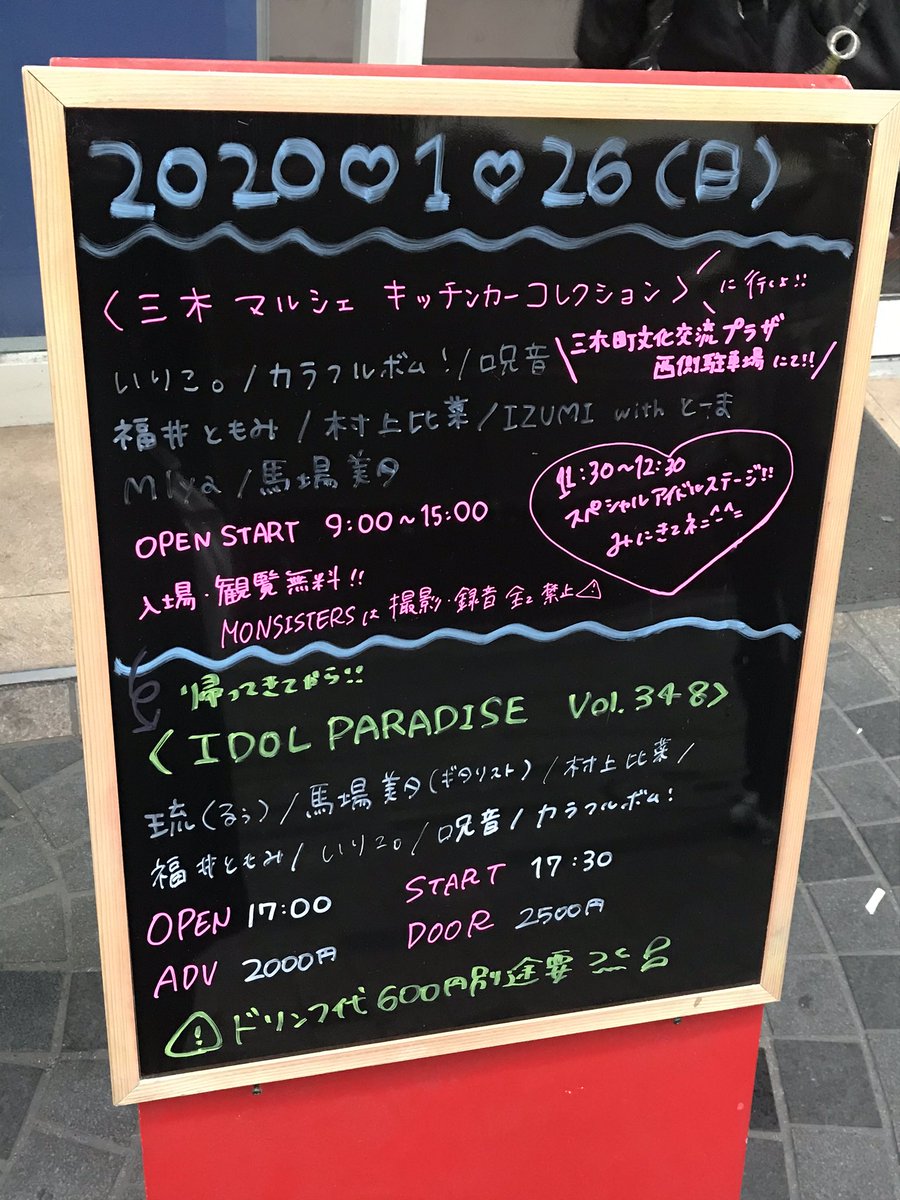 2020♡1♡26(日)
〈三木 マルシェ キッチンカーコレクション〉に行くよ!!
三木町文化交流プラザ
西側駐車場にて!!
いりこ。/カラフルボム!/呪音
福井ともみ/村上比菜/IZUMI with とーま
Miya/馬場美月
11:30〜12:30
スペシャルアイドルステージ!!
みにきてネ
OPEN START 9:00〜15:00
入場・観覧無料!!
MONSISTERSは撮影・録音全て禁止⚠
帰ってきてから!!
〈IDOL PARADISE Vol.348〉
琉(るぅ)/馬場美月(ギタリスト)/村上比菜/
福井ともみ/いりこ。/呪音/カラフルボム!
OPEN 17:00 START 17:30
ADV 2000円 DOOR 2500円
⚠ドリンク代600円別途要